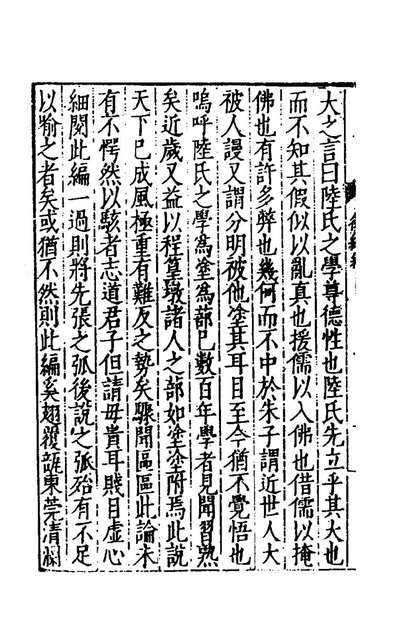 大之言曰陸氏之學尊德性也陸氏先立乎其大也
而不知其假似以亂真也援儒以入佛也借儒以掩
佛也有許多弊也幾何而不中於朱子謂近世人大
被人謾又謂分明被他塗其耳目至今猶不覺悟也
嗚呼陸氏之學為塗為蔀已數百年學者見聞習熟
矣近歲又益以程篁墩諸人之蔀如塗塗附焉此說
天下已成風極重有難反之勢矣驟聞區區此論未
有不愕然以駭者志道君子但請毋貴耳賤目虛心
細閱此編一過則將先張之弧後說之弧殆有不足
以喻之者矣或猶不然則此編奚翅覆瓿東莞清瀾